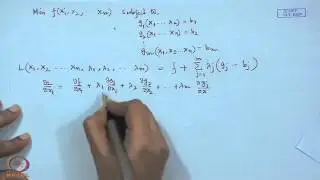 Min f(x₁, x₂, xₙ) subject to
g₁(x₁ .. xₙ) = b₁
g₂(x₁ .. xₙ) = b₂
gₘ(x₁ .. xₙ) = bₘ
L(x₁, x₂ ... xₙ, λ₁, λ₂, ... λₘ) = f + Σⱼ₌₁ᵐ λⱼ(gⱼ - bⱼ)
∂L/∂x₁ = ∂f/∂x₁ + λ₁ ∂g₁/∂x₁ + λ₂ ∂g₂/∂x₂ + ... + λₘ ∂gⱼ/∂x